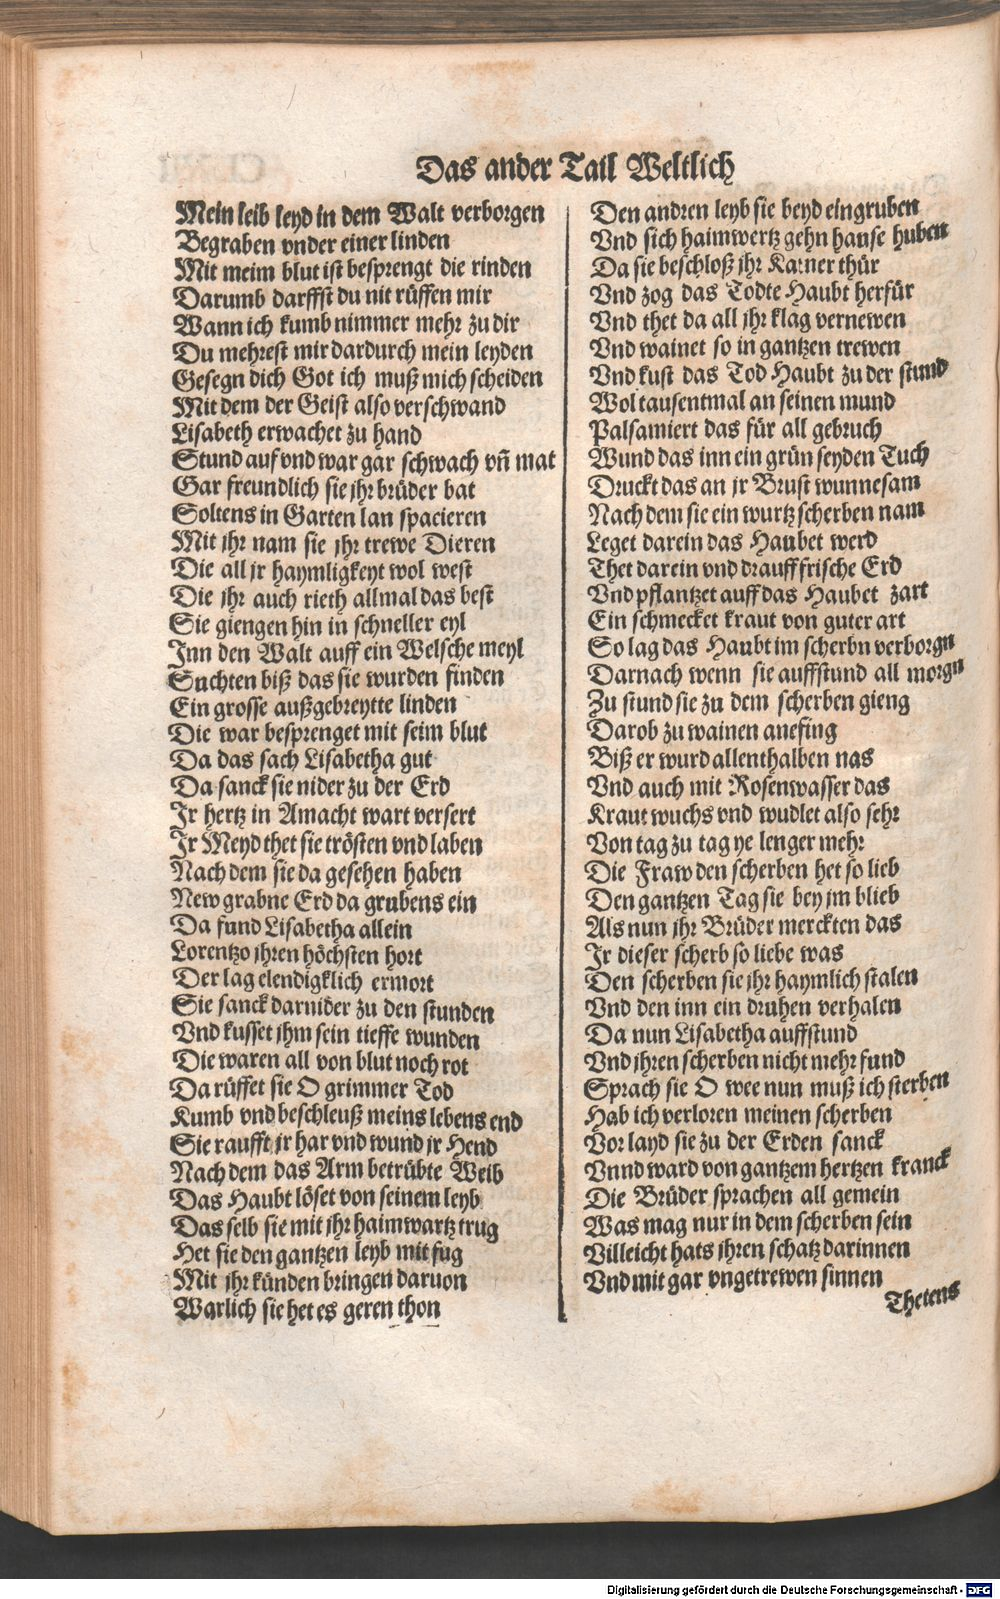 Das ander Tail Weltlich
Mein leib leyd in dem Walt verborgen
Begraben vnder einer linden
Mit meim blut ist besprengt die rinden
Darumb darffst du nit rüffen mir
Wann ich kumb nimmer mehr zu dir
Du mehrest mir dardurch mein leyden
Gesegn dich Got ich muß mich scheiden
Mit dem der Geist also verschwand
Lisabeth erwachet zu hand
Stund auf vnd war gar schwach vñ mat
Gar freundlich sie jhr brüder bat
Soltens in Garten lan spacieren
Mit jhr nam sie jhr trewe Dieren
Die all jr haymligkeyt wol west
Die jhr auch rieth allmal das best
Sie giengen hin in schneller eyl
Inn den Walt auff ein Welsche meyl
Suchten biß das sie wurden finden
Ein grosse außgebreytte linden
Die war besprenget mit seim blut
Da das sach Lisabetha gut
Da sanck sie nider zu der Erd
Jr hertz in Amacht wart versert
Jr Meyd thet sie trösten vnd laben
Nach dem sie da gesehen haben
New grabne Erd da grubens ein
Da fund Lisabetha allein
Lorentzo jhren höchsten hort
Der lag elendigklich ermort
Sie sanck darnider zu den stunden
Vnd kusset jhm sein tieffe wunden
Die waren all von blut noch rot
Da rüffet sie O grimmer Tod
Kumb vnd beschleuß meins lebens end
Sie raufft jr har vnd wund jr Hend
Nach dem das Arm betrübte Weib
Das Haubt löset von seinem leyb
Das selb sie mit jhr haimwartz trug
Het sie den gantzen leyb mit fug
Mit jhr künden bringen daruon
Warlich sie het es geren thon
Den andren leyb sie beyd eingruben
Vnd sich haimwertz gehn hause huben
Da sie beschloß jhr Kamer thür
Vnd zog das Todte Haubt herfür
Vnd thet da all jhr klag vernewen
Vnd wainet so in gantzen trewen
Vnd kust das Tod Haubt zu der stund
Wol tausentmal an seinen mund
Palsamiert das für all gebruch
Wund das inn ein grün seyden Tuch
Druckt das an jr Brust wunnesam
Nach dem sie ein wurtz scherben nam
Leget darein das Haubet werd
Thet darein vnd drauff frische Erd
Vnd pflantzet auff das Haubet zart
Ein schmecket kraut von guter art
So lag das Haubt im scherbn verborgn
Darnach wenn sie auffstund all morgn
Zu stund sie zu dem scherben gieng
Darob zu wainen anefing
Biß er wurd allenthalben nas
Vnd auch mit Rosenwasser das
Kraut wuchs vnd wudlet also sehr
Von tag zu tag ye lenger mehr
Die Fraw den scherben het so lieb
Den gantzen Tag sie bey jm blieb
Als nun jhr Brüder merckten das
Jr dieser scherb so liebe was
Den scherben sie jhr haymlich stalen
Vnd den inn ein druhen verhalen
Da nun Lisabetha auffstund
Vnd jhren scherben nicht mehr fund
Sprach sie O wee nun muß ich sterben
Hab ich verloren meinen scherben
Vor layd sie zu der Erden sanck
Vnnd ward von gantzem hertzen kranck
Die Brüder sprachen all gemein
Was mag nur in dem scherben sein
Villeicht hats jhren schatz darinnen
Vnd mit gar vngetrewen sinnen
Thetens
Digitalisierung gefördert durch die Deutsche Forschungsgemeinschaft - DFG